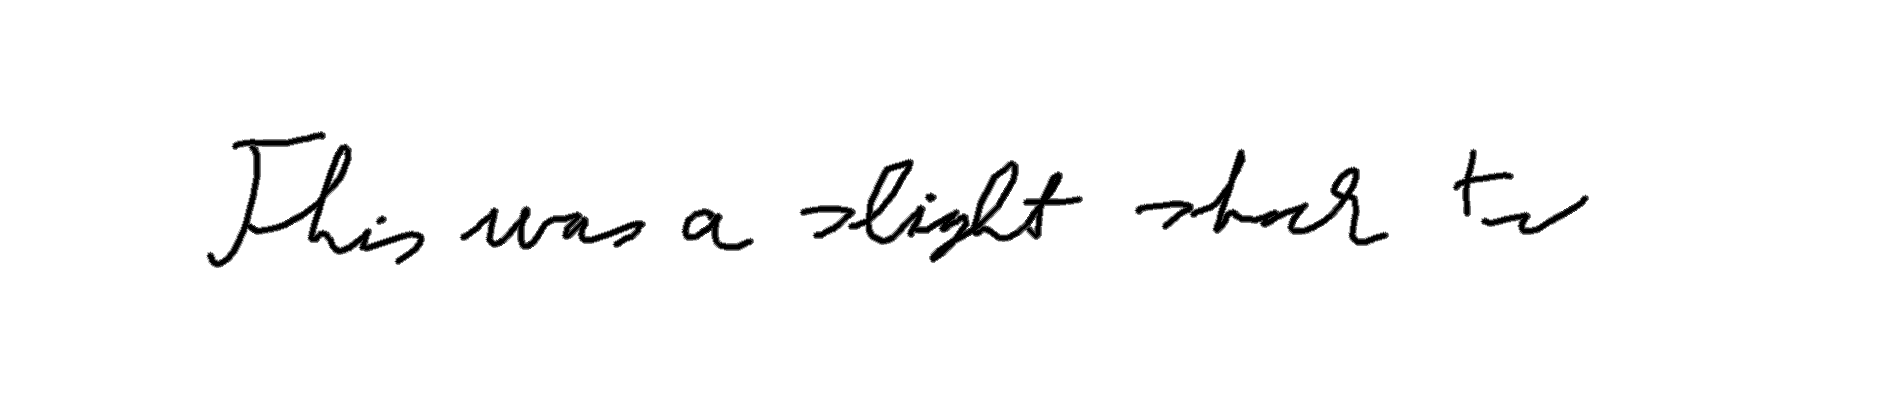 This was a slight shock to